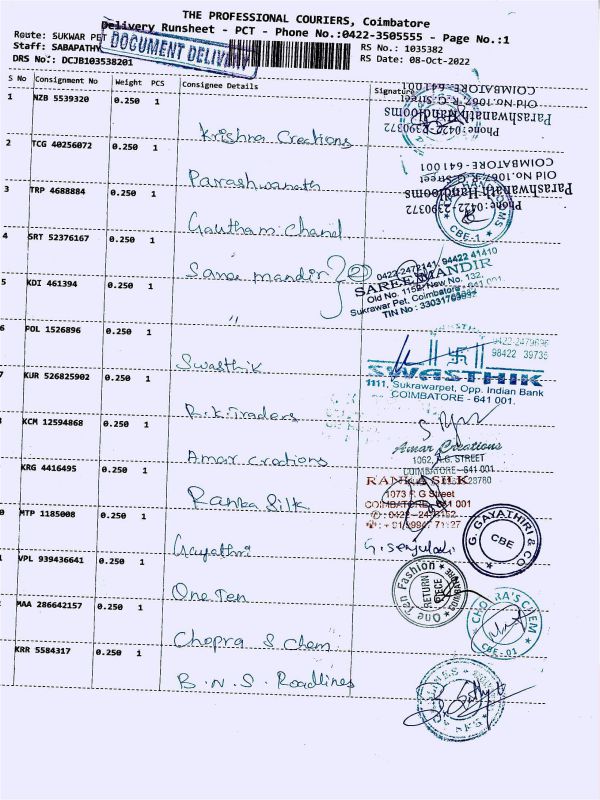 THE PROFESSIONAL COURIERS, Coimbatore
Delivery Runsheet - PCT - Phone No.:0422-3505555 - Page No.:1
Route: SUKWAR PET
DOCUMENT DELIVERY
RS No.: 1035382
Staff: SABAPATHY
RS Date: 08-Oct-2022
DRS No.: DCJB103538201
S No Consignment No Weight PCS Consignee Details Signature
1 NZB 5539320 0.250 1 Krishna Creations
COIMBATORE-641001
Old No.1067, R.G. Street
Parashwanath Handlooms
Phone:0422-2390372
2 TCG 40256072 0.250 1 Parashwanath
COIMBATORE-641001
Old No.1067, R.G. Street
Parashwanath Handlooms
Phone:0422-2390372
3 TRP 4688884 0.250 1 Gautham Chand
CBE-1.
4 SRT 52376167 0.250 1 Saree mandir
0422-2472141, 94422 41410
SAREE MANDIR
Old No. 1152, New No. 132,
Sukrawar Pet, Coimbatore - 641 001.
5 KDI 461394 0.250 1 "
6 POL 1526896 0.250 1 Swasthik
98422 39735
SWASTHIK
1111, Sukrawarpet, Opp. Indian Bank
COIMBATORE - 641 001.
7 KUR 526825902 0.250 1 B.K. Traders
KCM 12594868 0.250 1 Amar Creations
Amar Creations
1062, R.G. STREET
COIMBATORE-641 001
KRG 4416495 0.250 1 Ranka Silk
RANKA SILK
1073 R G Street
COIMBATORE-641 001
0 MTP 1185008 0.250 1 Gayathri
G. GAYATHIRI & CO
CBE
VPL 939436641 0.250 1 One Ten
One Ten Fashion
RETURN
PIECE
MAA 286642157 0.250 1 Chopra S Chem
CHOPRA'S CHEM
CBE-01
KRR 5584317 0.250 1 B.N.S. Roadlines